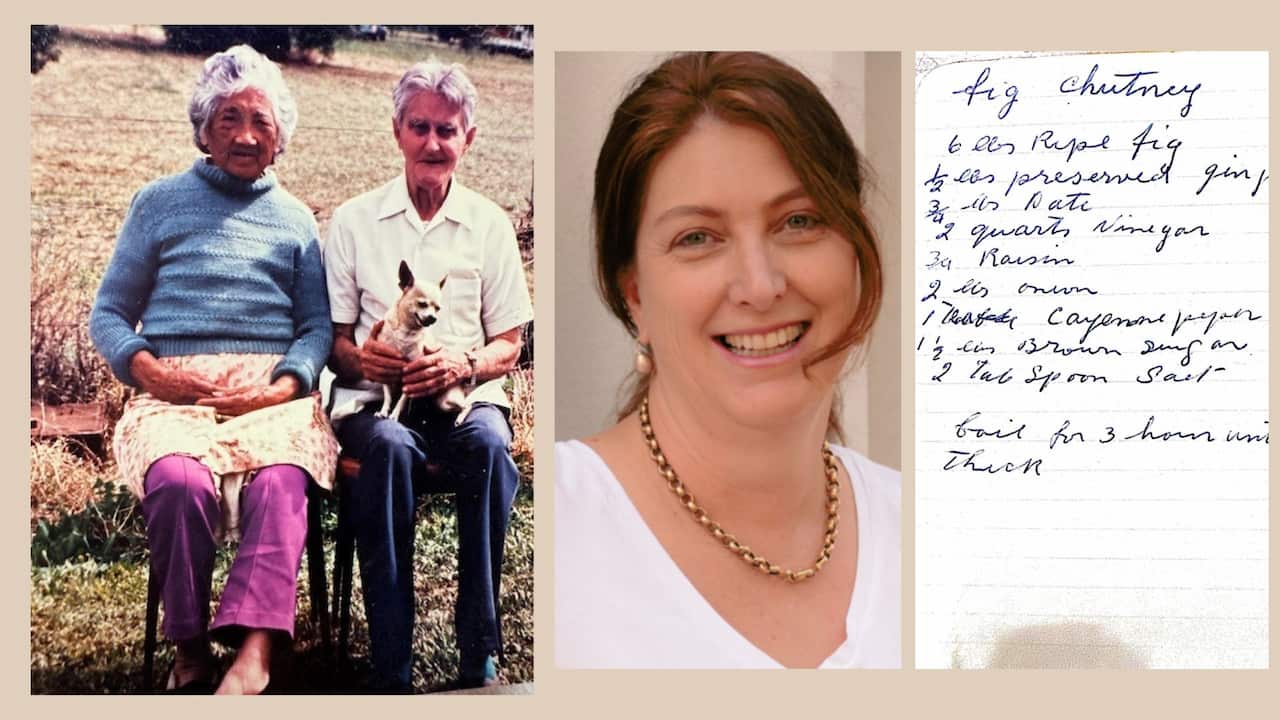 fig chutney
6 lbs Ripe fig
1/2 lbs preserved ging
3/4 lbs Date
2 quarts Vinegar
3/4 Raisin
2 lbs onion
1 Cayenne pepper
1 1/2 lbs Brown Sugar
2 Tab Spoon Salt
boil for 3 hour unt
thick